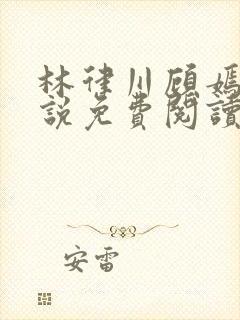 林律川顧嫣
說免費閱讀
安雷